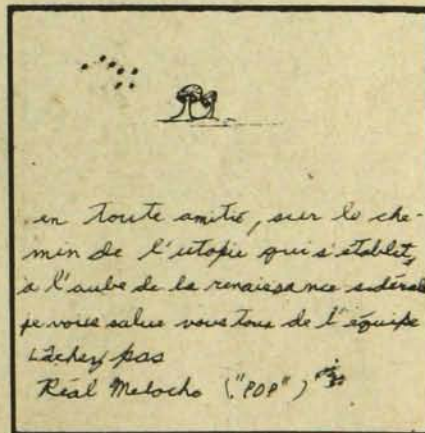 en toute amitié, sur le che-
min de l'utopie qui s'établit,
a l'aube de la renaissance sidérale
je vous salue vous tous de l'équipe
Lâchez pas
Réal Melocho ("POP")